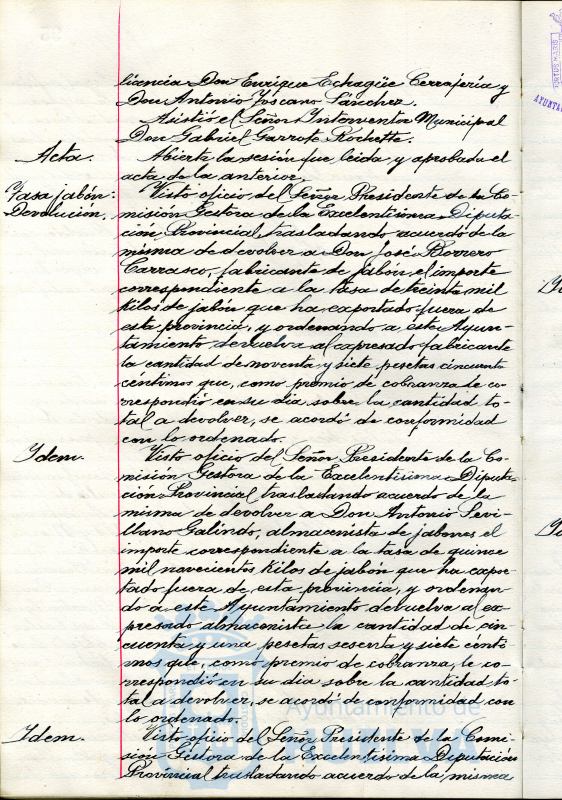 licencia Don Enrique Echagüe Cerrajería y
Don Antonio Toscano Sánchez.
Asistió el Señor Interventor Municipal
Don Gabriel Garrote Rochette.
Acta.
Abierta la sesión fue leida y aprobada el
acta de la anterior.
Tasa jabón:
Devolución.
Visto oficio del Señor Presidente de la Co-
misión Gestora de la Excelentísima Diputa-
ción Provincial, trasladando acuerdo de la
misma de devolver a Don José Borrero
Carrasco, fabricante de jabón, el importe
correspondiente a la tasa de treinta mil
kilos de jabón que ha exportado fuera de
esta provincia, y ordenando a este Ayun-
tamiento devuelva al expresado fabricante
la cantidad de noventa y siete pesetas cincuenta
centimos que, como premio de cobranza le co-
rrespondió en su dia sobre la cantidad to-
tal a devolver, se acordó de conformidad
con lo ordenado.
Idem.
Visto oficio del Señor Presidente de la Co-
misión Gestora de la Excelentisima Diputa-
ción Provincial trasladando acuerdo de la
misma de devolver a Don Antonio Sevi-
llano Galindo, almacenista de jabones el
importe correspondiente a la tasa de quince
mil novecientos kilos de jabón que ha expor-
tado fuera de esta provincia, y ordenan-
do a este Ayuntamiento devuelva al ex-
presado almacenista la cantidad de cin-
cuenta y una pesetas sesenta y siete cénti-
mos que, como premio de cobranza, le co-
rrespondió en su dia sobre la cantidad to-
tal a devolver, se acordó de conformidad con
lo ordenado.
Idem.
Visto oficio del Señor Presidente de la Comi-
sión Gestora de la Excelentisima Diputación
Provincial trasladando acuerdo de la misma
Ayuntamiento de
HUELVA